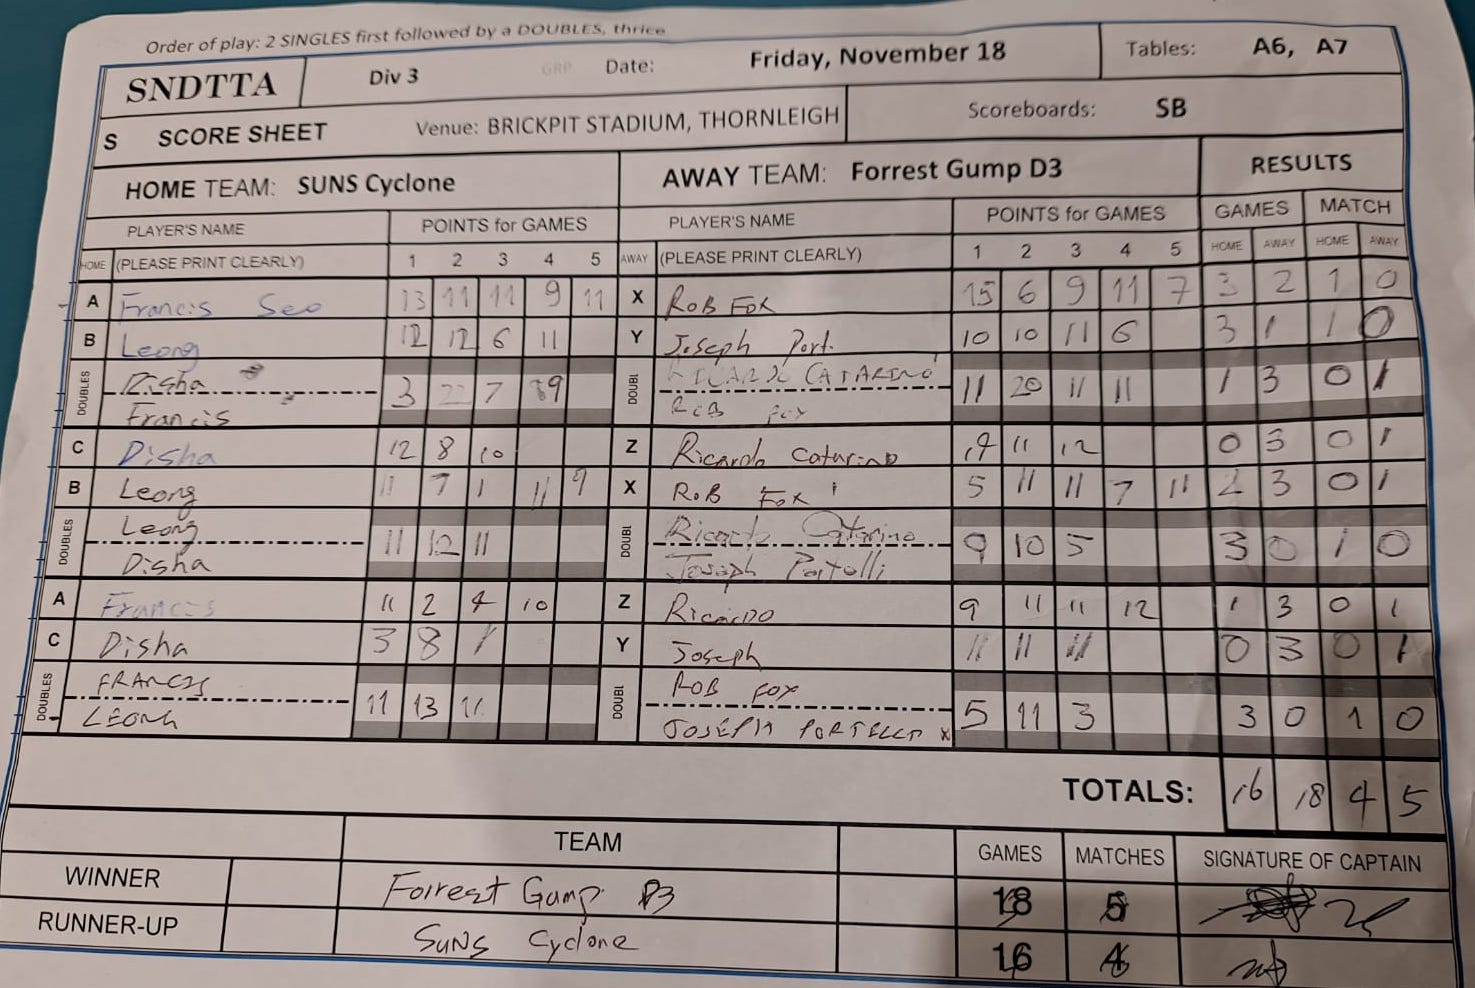 Order of play: 2 SINGLES first followed by a DOUBLES, thrice
SNDTTA Div 3 GRP Date: Friday, November 18 Tables: A6, A7
S SCORE SHEET Venue: BRICKPIT STADIUM, THORNLEIGH Scoreboards: SB
HOME TEAM: SUNS Cyclone AWAY TEAM: Forrest Gump D3 RESULTS
PLAYER'S NAME POINTS for GAMES PLAYER'S NAME POINTS for GAMES GAMES MATCH
HOME (PLEASE PRINT CLEARLY) 1 2 3 4 5 AWAY (PLEASE PRINT CLEARLY) 1 2 3 4 5 HOME AWAY HOME AWAY
A Francis Seo 13 11 11 9 11 X ROB FOX 15 6 9 11 7 3 2 1 0
B Leong 12 12 6 11 Y Joseph Port. 10 10 11 6 3 1 1 0
DOUBLES Disha 3 22 7 9 DOUBL RICARDO CATARINO 11 20 11 11 1 3 0 1
Francis ROB FOX
C Disha 12 8 10 Z Ricardo Catarino 11 12 0 3 0 1
B Leong 11 7 1 11 9 X ROB FOX 5 11 11 7 11 2 3 0 1
DOUBLES Leong 11 12 11 DOUBL Ricardo Catarino 9 10 5 3 0 1 0
Disha Joseph Portelli
A Francis 11 2 4 10 Z Ricardo 9 11 11 12 1 3 0 1
C Disha 3 8 1 Y Joseph 11 11 11 0 3 0 1
DOUBLES FRANCIS 11 13 11 DOUBL ROB FOX 5 11 3 3 0 1 0
LEONG JOSEPH PORTELLI x
TOTALS: 16 18 4 5
TEAM GAMES MATCHES SIGNATURE OF CAPTAIN
WINNER Forrest Gump D3 18 5
RUNNER-UP SUNS Cyclone 16 4